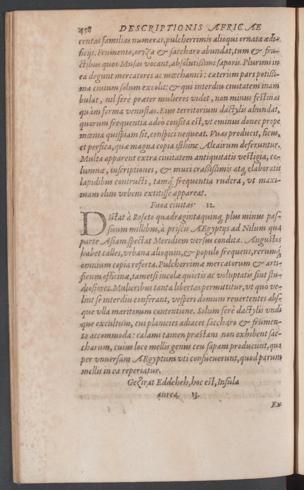 458 DESCRIPTIONIS AFRICAE
centas familias numerat, pulcherrimis alioqui ornata ædi-
ficijs. Frumento, oryza & saccharo abundat, tum & fru-
ctibus quos Musas vocant, absolutissimi saporis. Plurimi in
ea degunt mercatores ac mechanici: cæterùm pars potissi-
ma ciuium solum excolit: & qui interdiu ciuitatem inam
bulat, nil ferè præter mulieres videt, non minus festiuas
quàm forma venustas. Eius territorium dactylis abundat,
quorum frequentia adeò consita est, vt eminus donec prope
mœnia quispiam sit, conspici nequeat. Vuas producit, ficus,
et persica, quæ magna copia istinc Alcairum deferuntur.
Multa apparent extra ciuitatem antiquitatis vestigia, co-
lumnæ, inscriptiones, & muri crassissimis atq; elaboratis
lapidibus constructi, tamq́; frequentia rudera, vt maxi-
mam olim vrbem extitisse appareat.
Fuoa ciuitas 12.
Distat à Roseto quadragintaquinq; plus minus pas-
suum milibus, à priscis Ægyptijs ad Nilum qua
parte Asiam spectat Meridiem versus condita. Augustos
habet calles, vrbana alioquin, & populo frequens, rerumq́;
omnium copia referta. Pulcherrima mercatorum & arti-
ficum officinæ, tametsi incolæ quietis ac voluptatis sint stu-
diosissimi. Mulieribus tanta libertas permittitur, vt quò ve-
lint se interdiu conferant, vesperi domum reuertentes abs-
que vlla maritorum contentione. Solum ferè dactylis vndi
que excultum, cui planicies adiacet saccharo & frumen-
to accommoda: calami tamen præstans non exhibent sac-
charum, cuius loco mellis genus ceu sapam producunt, quo
per vniuersam Ægyptum vti consueuerunt, quòd parum
mellis in ea reperiatur.
Gezirat Eddeheb, hoc est, Insula
aurea. 13.
Ex